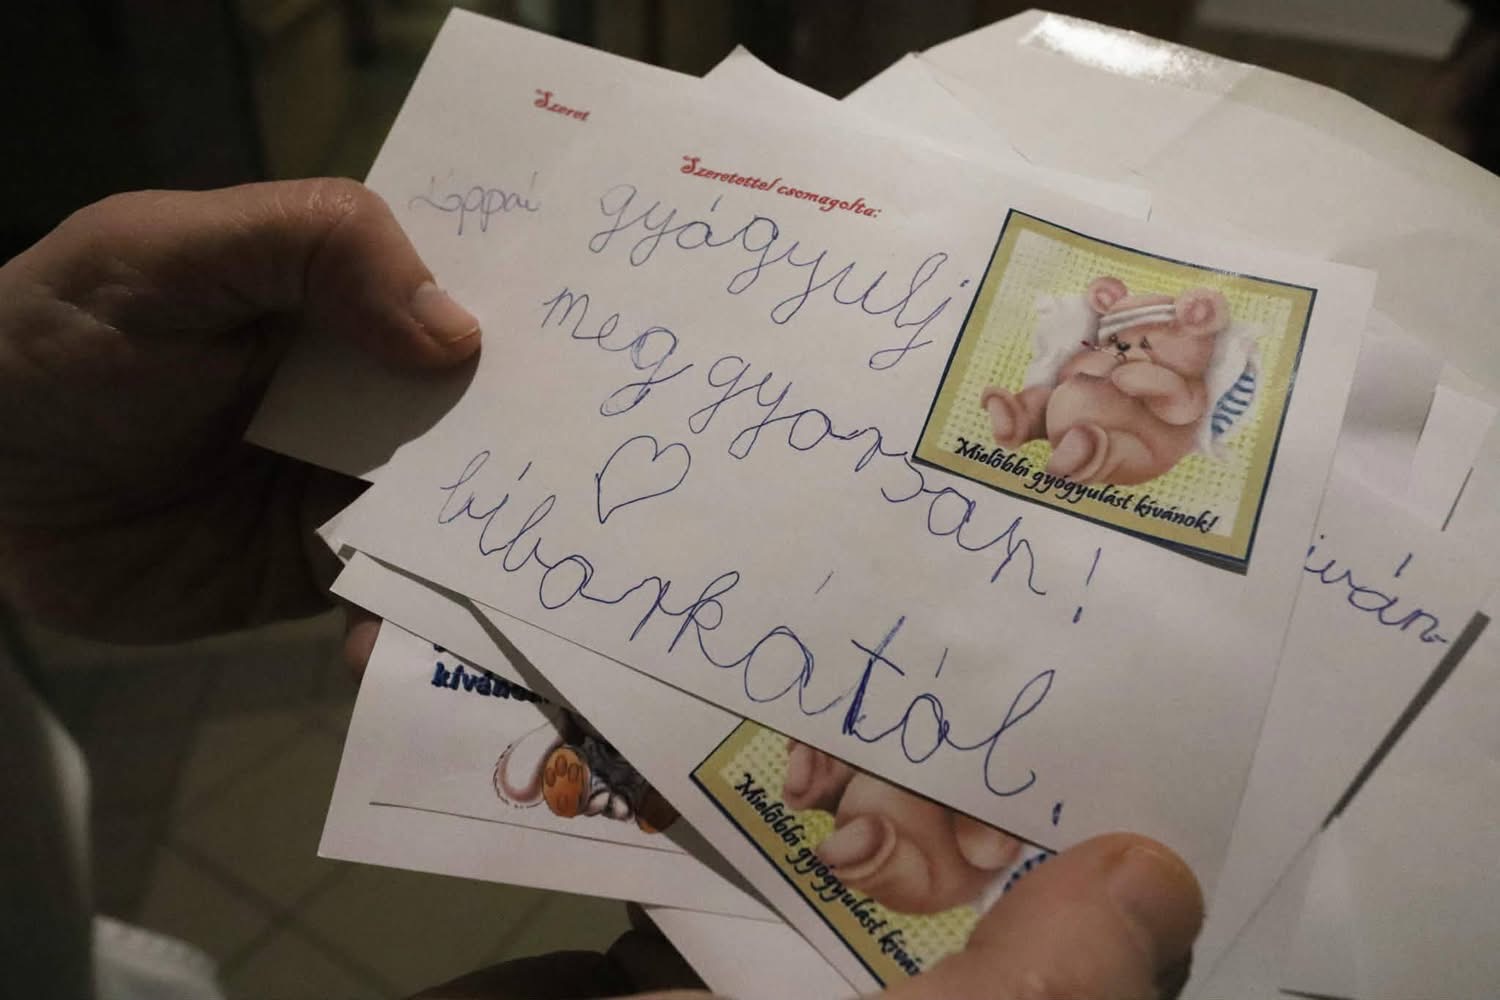 Szeret
Szeretettel csomagolta:
gyógyulj
meg gyorsan!
bíborkától.
Mielőbbi gyógyulást kívánok!
kíván
Mielőbbi gyógyulást kíván
iván-